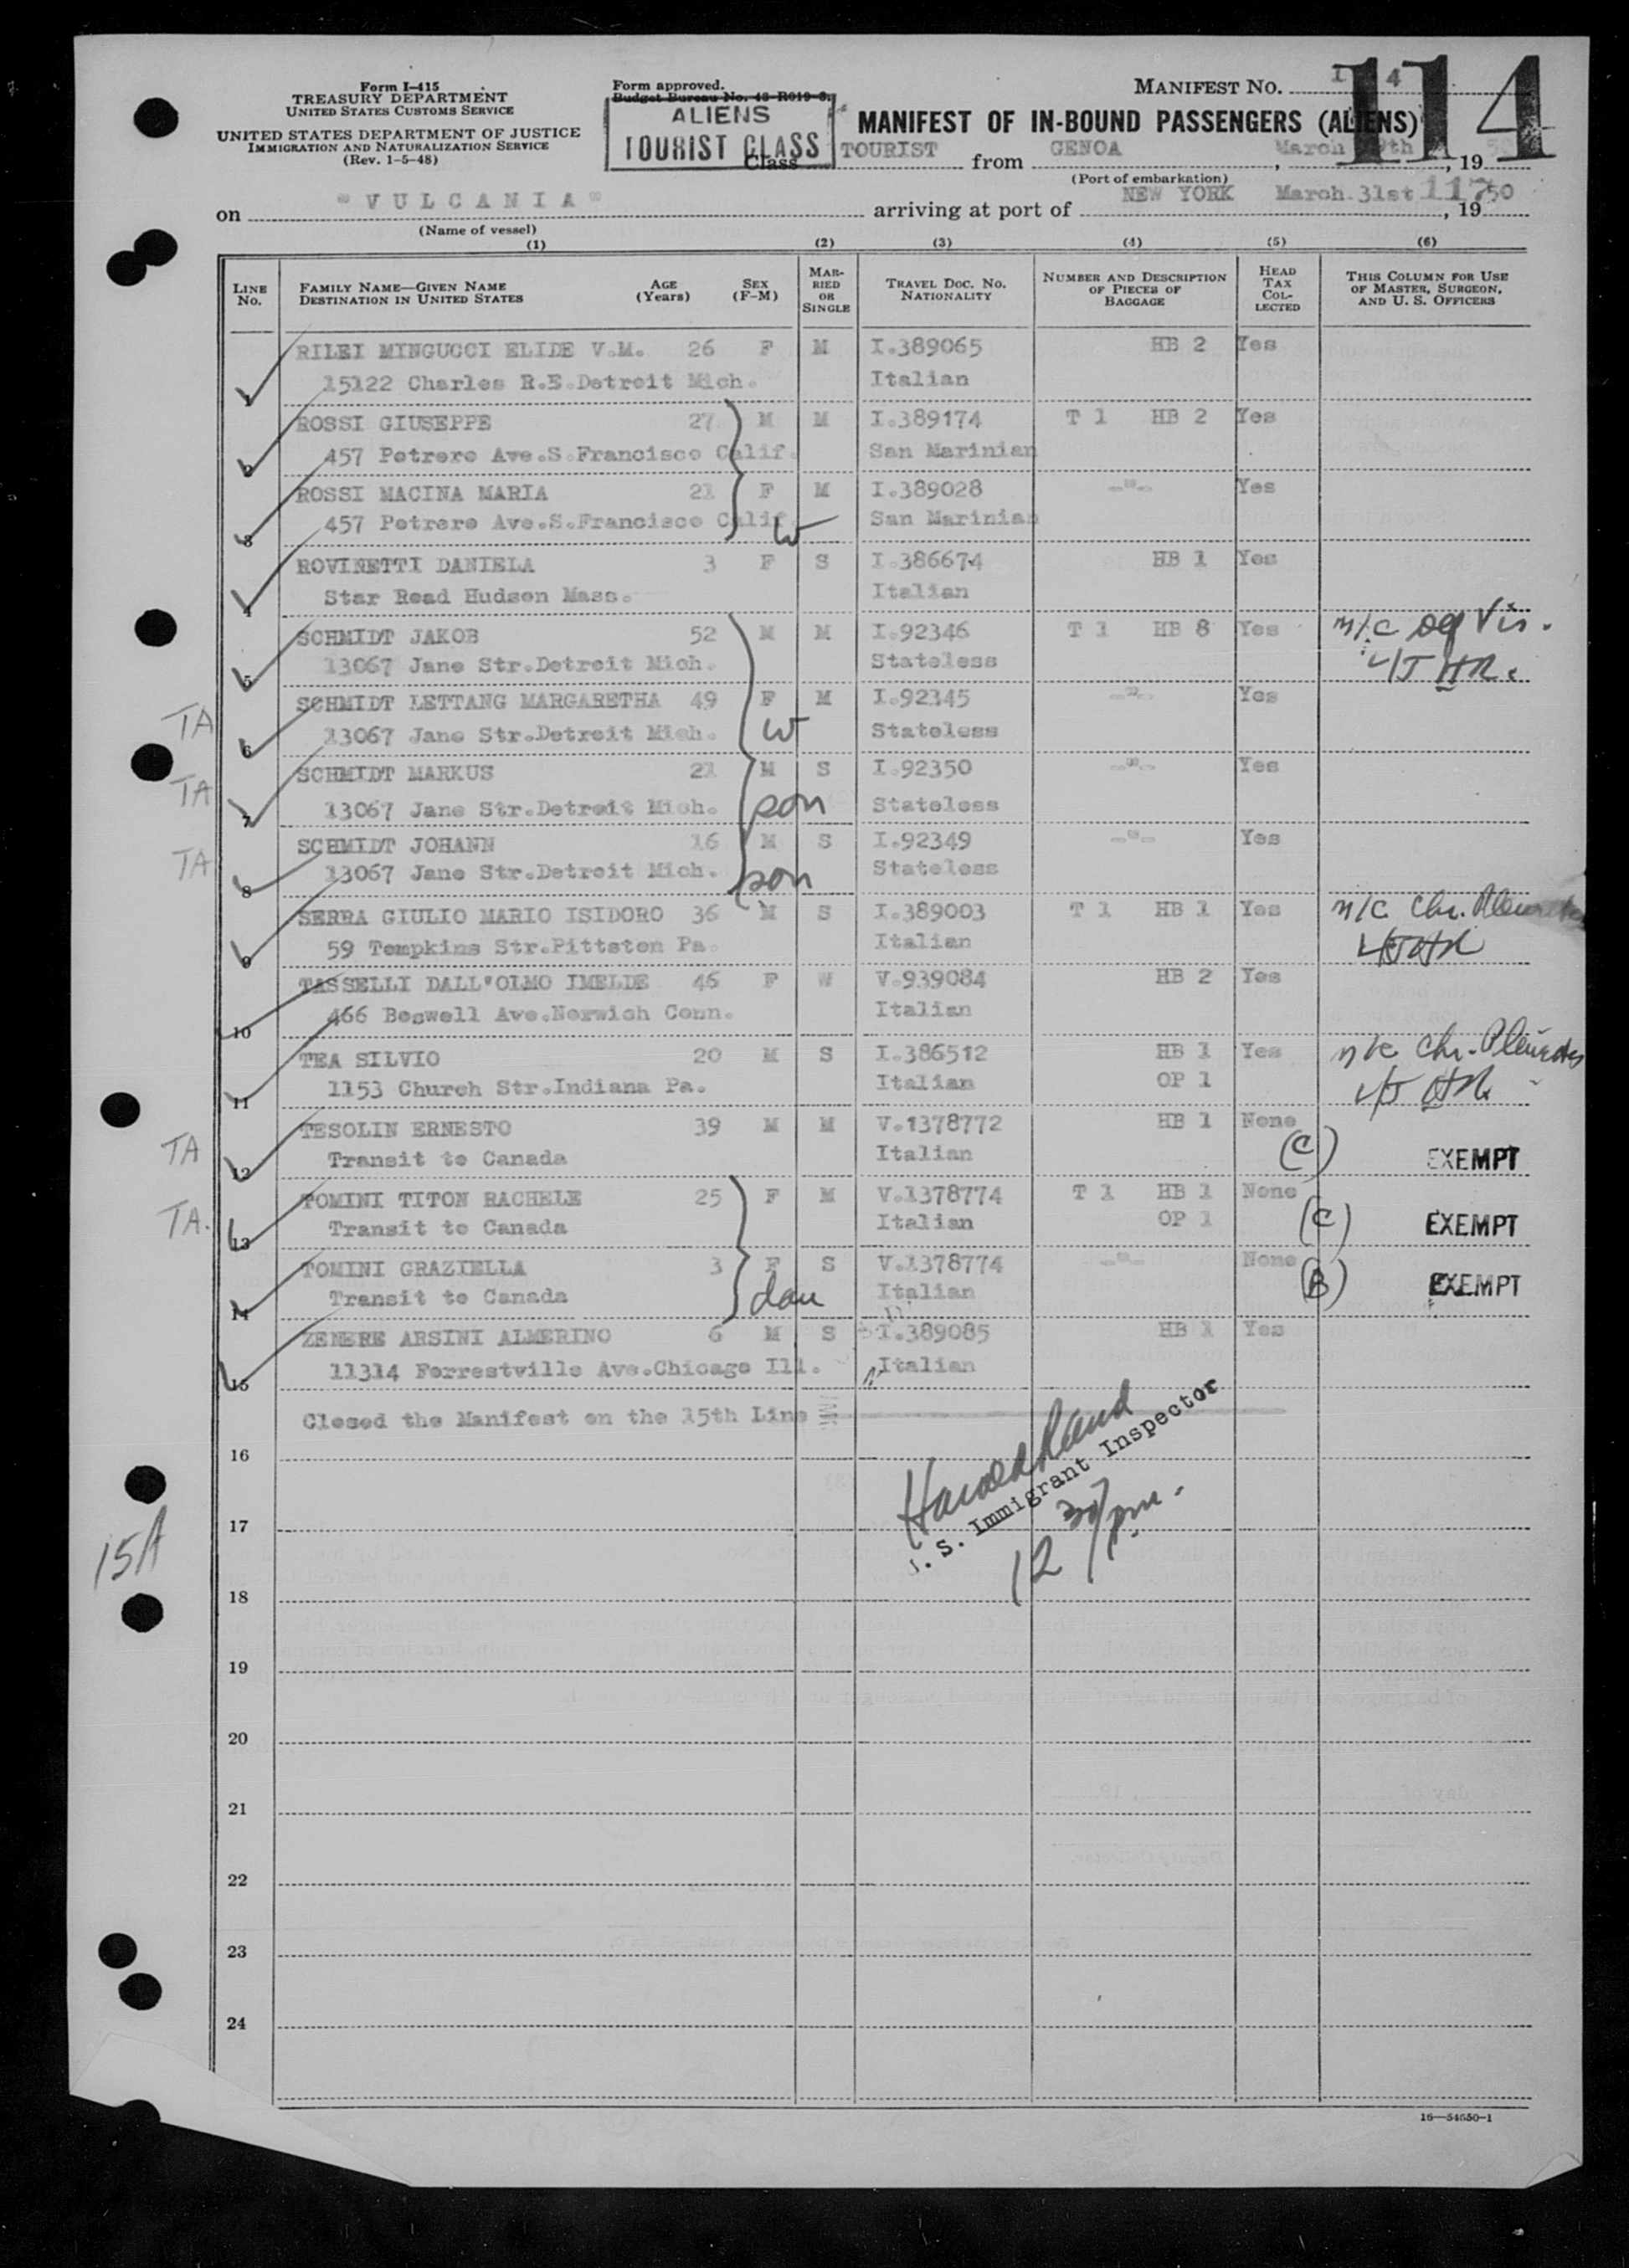 Form I-415
TREASURY DEPARTMENT
UNITED STATES CUSTOMS SERVICE
UNITED STATES DEPARTMENT OF JUSTICE
IMMIGRATION AND NATURALIZATION SERVICE
(Rev. 1-5-48)
Form approved.
Budget Bureau No. 43-R019-3.
ALIENS
TOURIST CLASS
MANIFEST NO. 114
MANIFEST OF IN-BOUND PASSENGERS (ALIENS)
Class TOURIST from GENOA, March 19
(Port of embarkation)
on "VULCANIA" arriving at port of NEW YORK March 31st 117, 1950
(Name of vessel)
(1) (2) (3) (4) (5) (6)
LINE No. FAMILY NAME—GIVEN NAME DESTINATION IN UNITED STATES AGE (Years) SEX (F-M) MARRIED OR SINGLE TRAVEL DOC. NO. NATIONALITY NUMBER AND DESCRIPTION OF PIECES OF BAGGAGE HEAD TAX COLLECTED THIS COLUMN FOR USE OF MASTER, SURGEON, AND U. S. OFFICERS
RILEI MINGUCCI ELIDE V.M. 26 F M I.389065 HB 2 Yes
1 15122 Charles R.E.Detroit Mich. Italian
ROSSI GIUSEPPE 27 M M I.389174 T 1 HB 2 Yes
2 457 Potrero Ave.S.Francisco Calif. San Marinian
ROSSI MACINA MARIA 21 F M I.389028 -"- Yes
3 457 Potrero Ave.S.Francisco Calif. W San Marinian
ROVINETTI DANIELA 3 F S I.386674 HB 1 Yes
4 Star Road Hudson Mass. Italian
SCHMIDT JAKOB 52 M M I.92346 T 1 HB 8 Yes m/c Vis.
5 13067 Jane Str.Detroit Mich. Stateless
TA SCHMIDT LETTANG MARGARETHA 49 F M I.92345 -"- Yes
6 13067 Jane Str.Detroit Mich. W Stateless
TA SCHMIDT MARKUS 21 M S I.92350 -"- Yes
7 13067 Jane Str.Detroit Mich. son Stateless
TA SCHMIDT JOHANN 16 M S I.92349 -"- Yes
8 13067 Jane Str.Detroit Mich. son Stateless
SERRA GIULIO MARIO ISIDORO 36 M S I.389003 T 1 HB 1 Yes m/c Chr.
9 59 Tompkins Str.Pittston Pa. Italian
TASSELLI DALL'OLMO IMELDE 46 F W V.939084 HB 2 Yes
10 466 Boswell Ave.Norwich Conn. Italian
TEA SILVIO 20 M S I.386512 HB 1 Yes m/c Chr.
11 1153 Church Str.Indiana Pa. Italian OP 1
TA TESOLIN ERNESTO 39 M M V.1378772 HB 1 None
12 Transit to Canada Italian (C) EXEMPT
TA. TOMINI TITON RACHELE 25 F M V.1378774 T 1 HB 1 None
13 Transit to Canada Italian OP 1 (C) EXEMPT
TOMINI GRAZIELLA 3 F S V.1378774 -"- None
14 Transit to Canada dau Italian (B) EXEMPT
ZENERE ARSINI ALMERINO 6 M S I.389085 HB 1 Yes
15 11314 Forrestville Ave.Chicago Ill. Italian
Closed the Manifest on the 15th Line
16
S. Immigrant Inspector
12 30/pm.
17
15A
18
19
20
21
22
23
24
16—54650-1